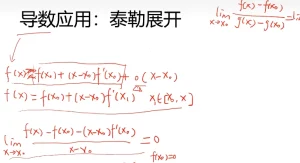 导数应用：泰勒展开
lim x→x₀ f(x)-f(x₀) / g(x)-g(x₀) = li
f(x) = f(x₀) + (x-x₀) f'(x₀) + o(x-x₀)
f(x) = f(x₀) + (x-x₀) f'(x₁) x₁∈[x₀, x]
lim x→x₀ f(x)-f(x₀)-(x-x₀)f'(x₀) / x-x₀ = 0
f(x₀)=0